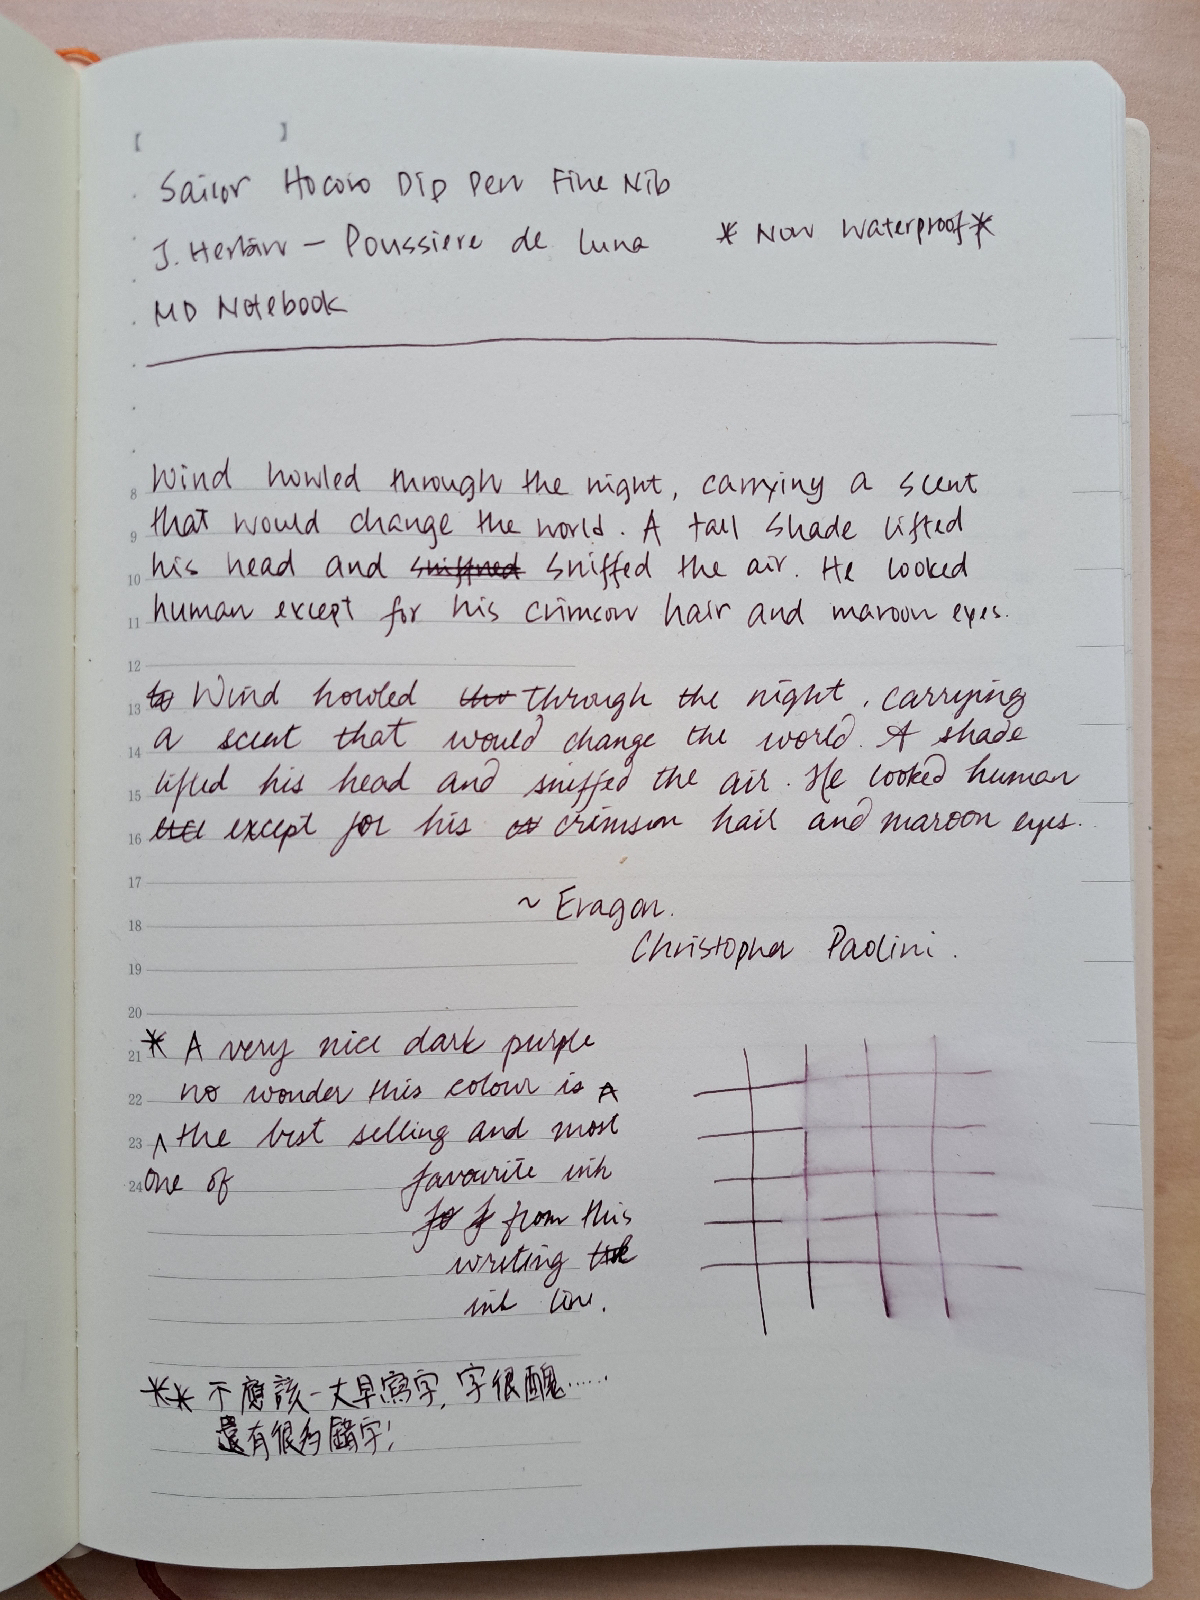 Sailor Hocoro Dip Pen Fine Nib
J. Herbin – Poussiere de Luna * Non Waterproof*
MD Notebook
8 Wind howled through the night, carrying a scent
9 that would change the world. A tall shade lifted
10 his head and sniffned sniffed the air. He looked
11 human except for his crimson hair and maroon eyes.
12
13 to Wind howled tho through the night, carrying
14 a scent that would change the world. A shade
15 lifted his head and sniffed the air. He looked human
16 except for his crimson hair and maroon eyes.
17
~ Eragon.
18
Christopher Paolini.
19
20
21 * A very nice dark purple
22 no wonder this colour is A
23 ^ the best selling and most
24 One of favourite ink
fo f from this
writing
ink line.
** 不應該一大早寫字, 字很醜……
還有很多錯字!